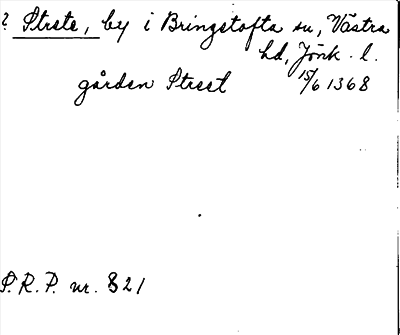 ? Strete, by i Bringetofta sn, Västra
hd, Jönk. l.
gården Strect 15/6 1368
P.R.P. nr. 821